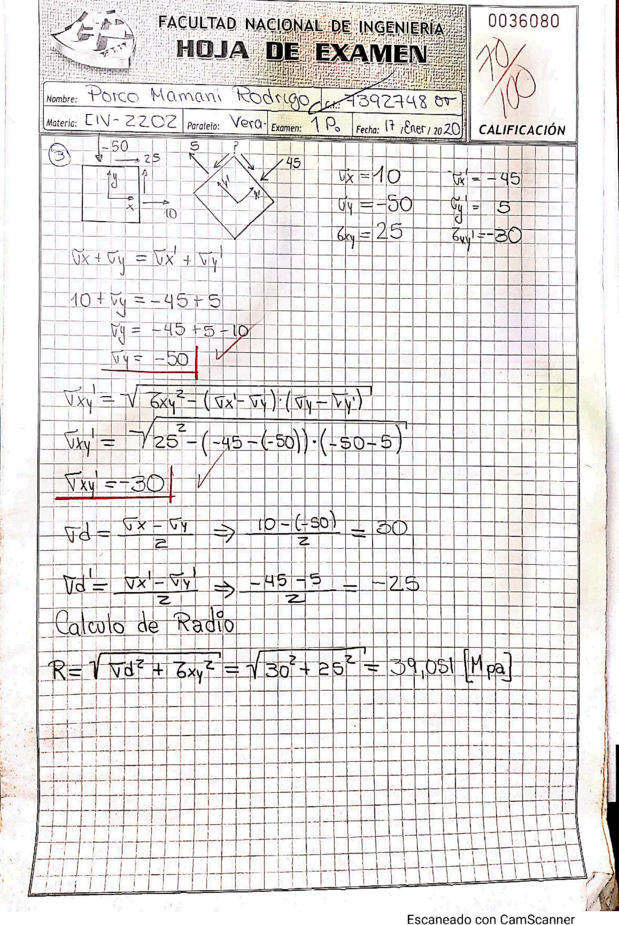 FACULTAD NACIONAL DE INGENIERIA
HOJA DE EXAMEN
0036080
70/100
Nombre: Porco Mamani Rodrigo C.I.: 7392748 or
Materia: CIV-2202 Paralelo: Vera. Examen: 1 P. Fecha: 17 / Ener / 2020
CALIFICACIÓN
3
-50
25
y
x
10
5
?
45
y'
x'
σx = 10
σy = -50
τxy = 25
σx' = -45
σy' = 5
τxy' = -30
σx + σy = σx' + σy'
10 + σy = -45 + 5
σy = -45 + 5 - 10
σy = -50
σxy' = √(τxy² - (σx' - σy)·(σy - σy'))
σxy' = -√(25² - (-45 - (-50))·(-50 - 5))
σxy' = -30
σd = (σx - σy)/2 ⇒ (10 - (-50))/2 = 30
σd' = (σx' - σy')/2 ⇒ (-45 - 5)/2 = -25
Calculo de Radio
R = √(σd² + τxy²) = √(30² + 25²) = 39,051 [Mpa]
Escaneado con CamScanner